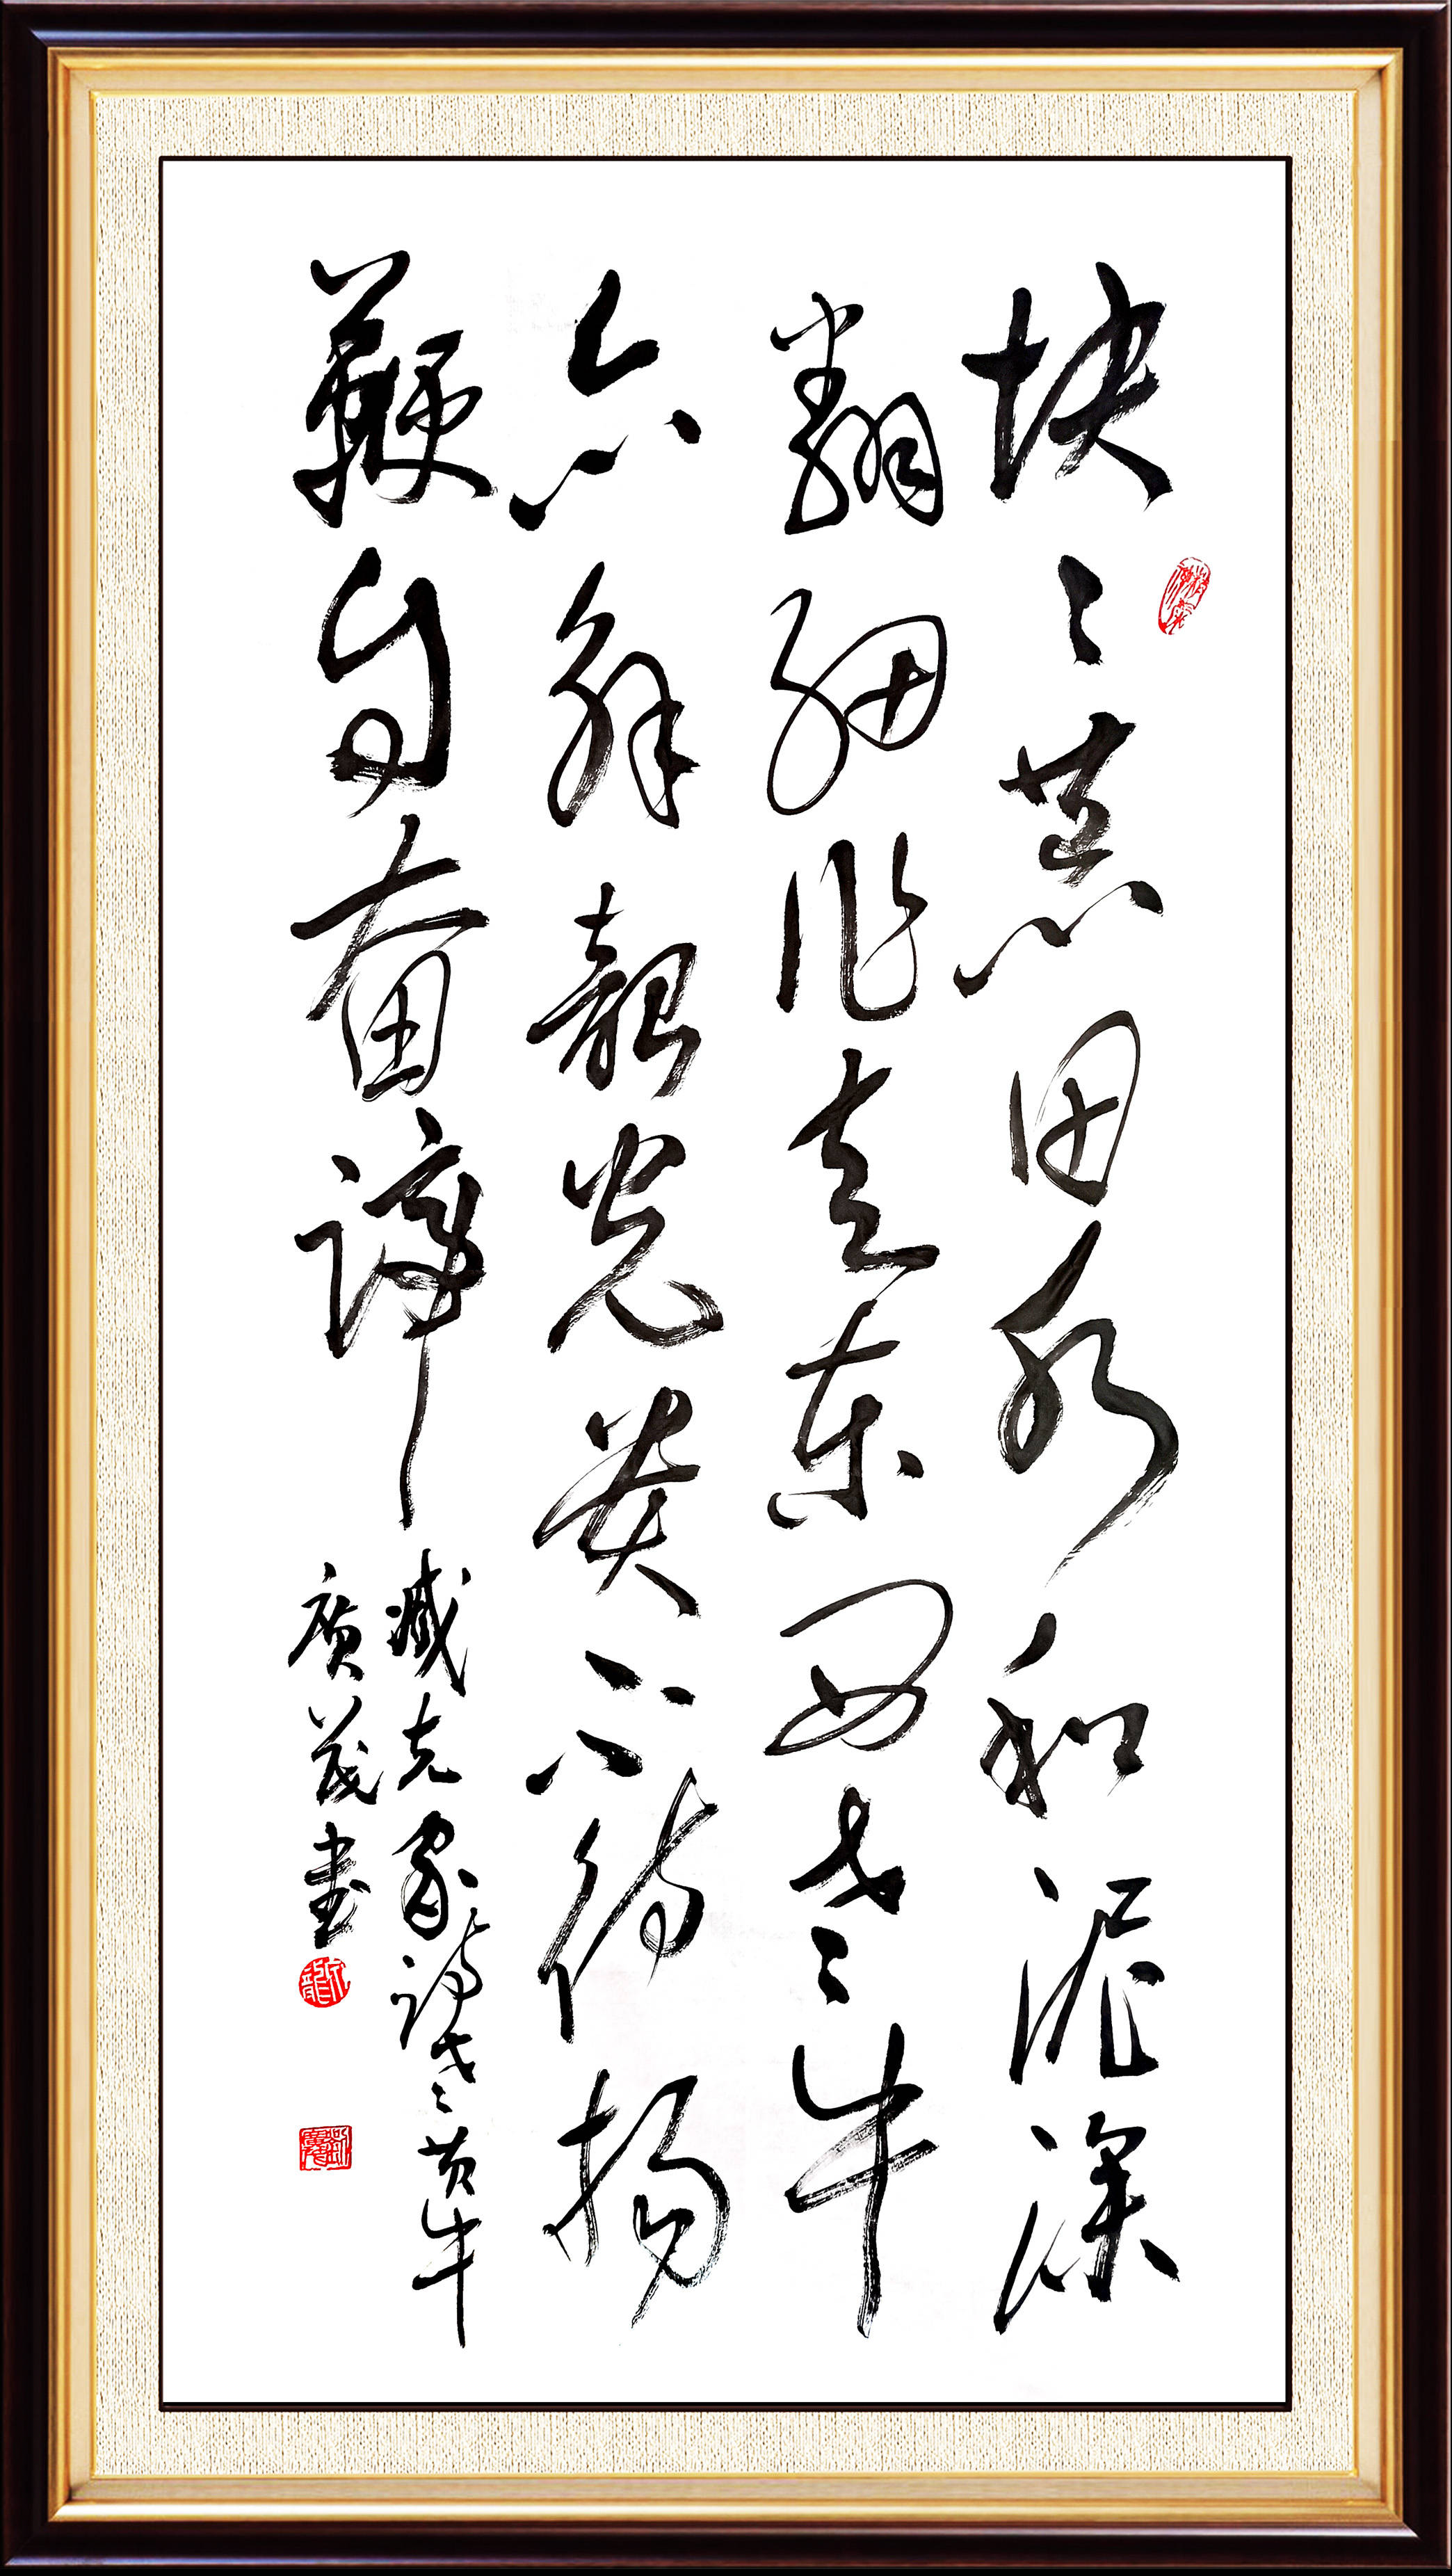 块〻荒田水和泥深
翻细作走东西老牛
亦解韶光贵不待扬
鞭自奋蹄
臧克家诗老黄牛
廣茂書